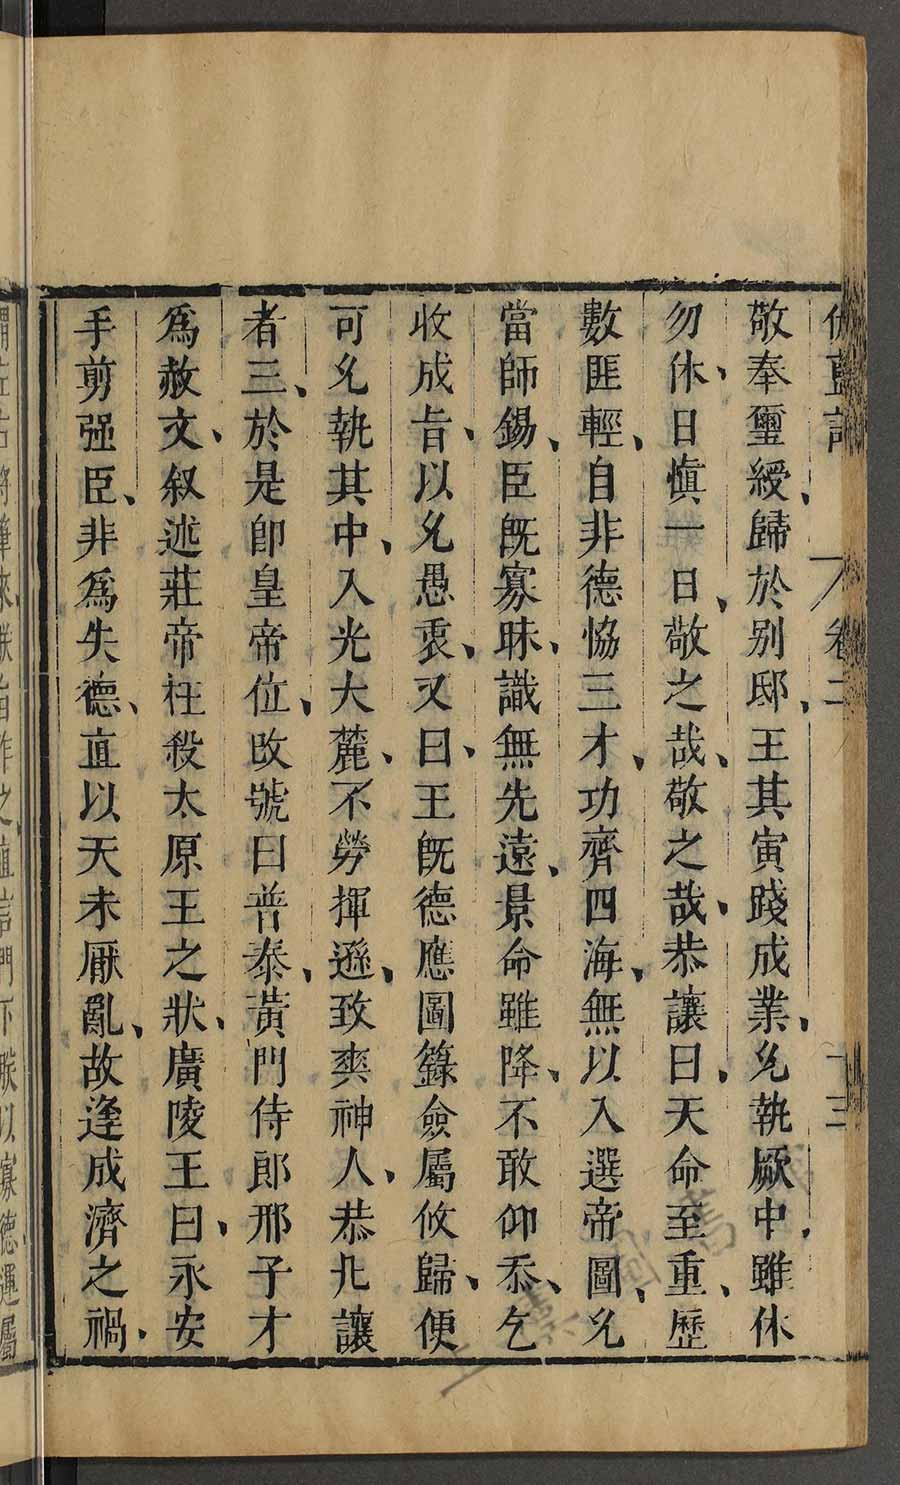 伽藍記 卷二 十三
敬奉璽綬、歸於别邸、王其寅踐成業、允執厥中、雖休
勿休、日慎一日、敬之哉、敬之哉、恭讓曰、天命至重、歷
數匪輕、自非德恊三才、功齊四海、無以入選帝圖、允
當師錫、臣旣寡昧、識無先遠、景命雖降、不敢仰忝、乞
收成旨、以允愚衷、又曰、王旣德應圖籙僉屬攸歸、便
可允執其中、入光大麓、不勞揮遜、致爽神人、恭凡讓
者三、於是卽皇帝位、改號曰普泰、黃門侍郎邢子才
爲赦文、叙述莊帝枉殺太原王之狀、廣陵王曰、永安
手剪强臣、非爲失德、直以天未厭亂、故逢成濟之禍、